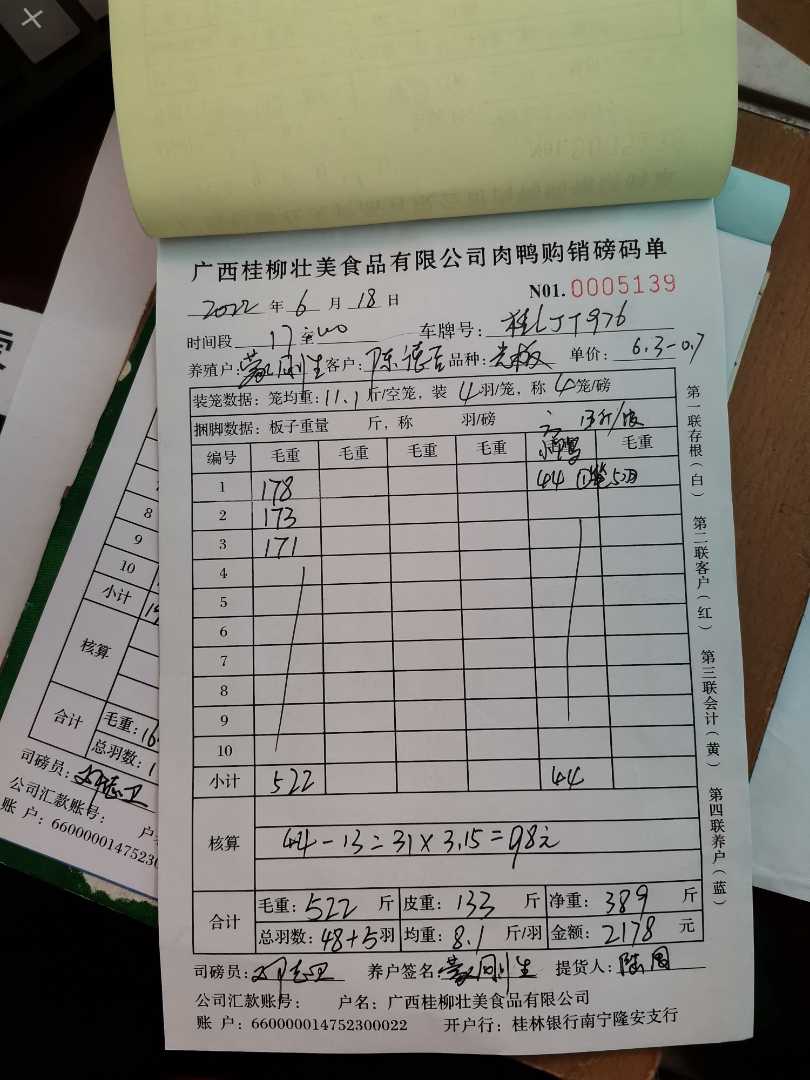 广西桂柳壮美食品有限公司肉鸭购销磅码单
2022 年 6 月 18 日 N01. 0005139
时间段 17 至 车牌号: 桂LJT976
养殖户: 蒙刚生 客户: 陈德 品种: 光板 单价: 6.3-0.7
装笼数据: 笼均重: 11.1 斤/空笼, 装 4 羽/笼, 称 4 笼/磅
捆脚数据: 板子重量 斤, 称 羽/磅 13斤/
编号 毛重 毛重 毛重 毛重 毛重
1 178 44 5羽
2 173
3 171
4
5
6
7
8
9
10
小计 522 44
核算 44-13=31×3.15=98元
合计 毛重: 522 斤 皮重: 133 斤 净重: 389 斤
总羽数: 48+5 羽 均重: 8.1 斤/羽 金额: 2178 元
司磅员: 养户签名: 蒙刚生 提货人:
公司汇款账号: 户名: 广西桂柳壮美食品有限公司
账 户: 660000014752300022 开户行: 桂林银行南宁隆安支行
第一联存根(白) 第二联客户(红) 第三联会计(黄) 第四联养户(蓝)
8
9
10
小计
核算
合计 毛重:
总羽数:
司磅员:
公司汇款账号:
账 户: 660000014752300